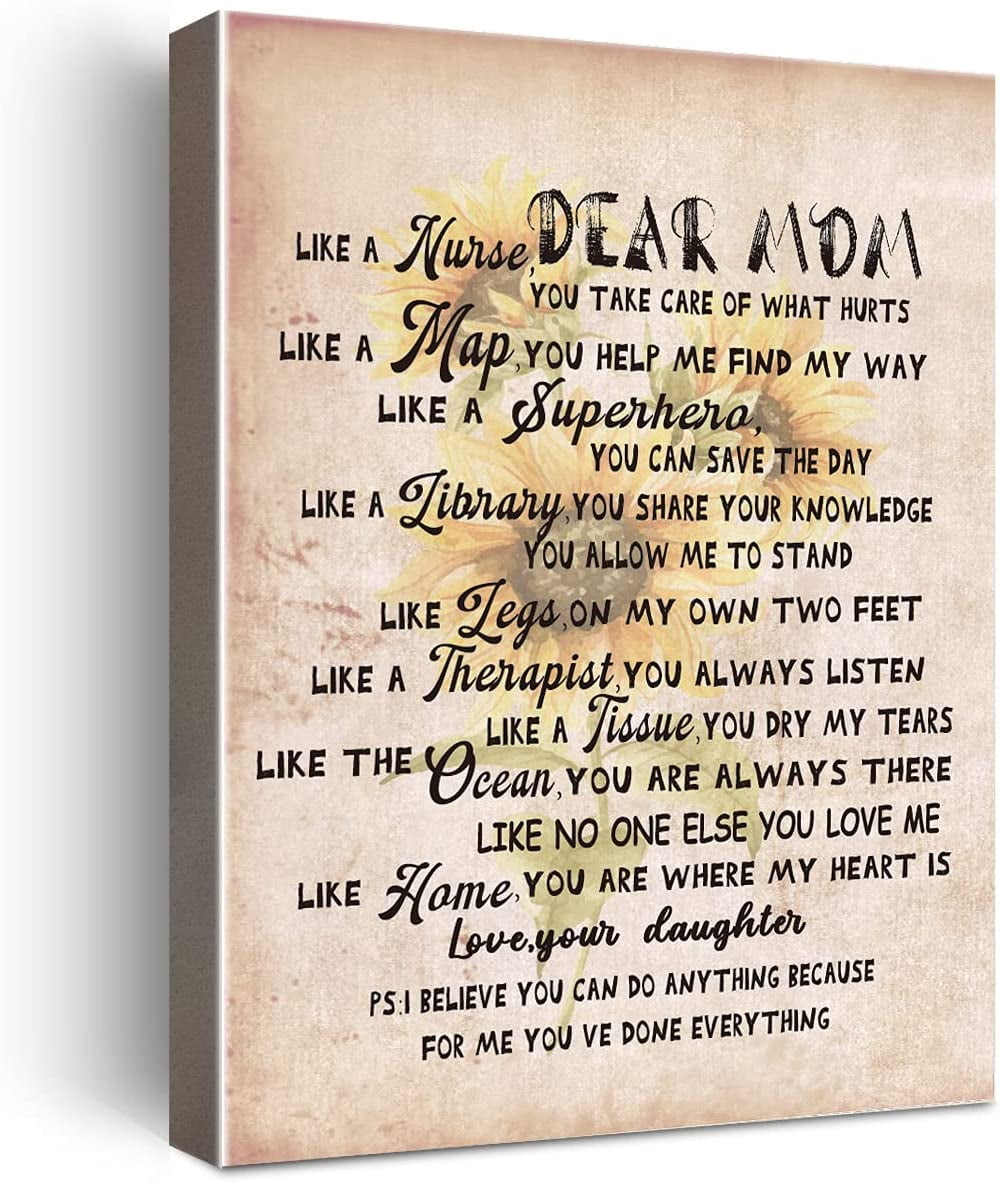 DEAR MOM
LIKE A Nurse,
YOU TAKE CARE OF WHAT HURTS
LIKE A Map, YOU HELP ME FIND MY WAY
LIKE A Superhero,
YOU CAN SAVE THE DAY
LIKE A Library, YOU SHARE YOUR KNOWLEDGE
YOU ALLOW ME TO STAND
LIKE Legs, ON MY OWN TWO FEET
LIKE A Therapist, YOU ALWAYS LISTEN
LIKE A Tissue, YOU DRY MY TEARS
LIKE THE Ocean, YOU ARE ALWAYS THERE
LIKE NO ONE ELSE YOU LOVE ME
LIKE Home, YOU ARE WHERE MY HEART IS
Love, your daughter
PS:I BELIEVE YOU CAN DO ANYTHING BECAUSE
FOR ME YOU VE DONE EVERYTHING